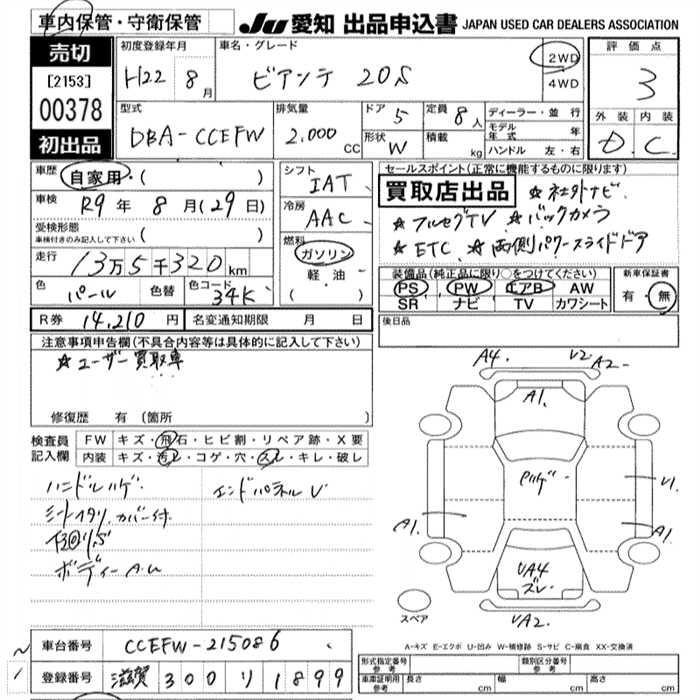 車内保管・守衛保管
JU 愛知 出品申込書 JAPAN USED CAR DEALERS ASSOCIATION
売切
[2153]
00378
初出品
初度登録年月
H22 8月
車名・グレード
ビアンテ 20S
2WD
4WD
評価点
3
外装 内装
D. C.
型式
DBA-CCEFW
排気量
2,000 CC
ドア 5
形状 W
定員 8人
積載 kg
ディーラー・並行
モデル年式 年
ハンドル 左・右
車歴 自家用・( )
車検 R9年 8月(29日)
受検形態
車検付きのみ記入して下さい ( )
走行 13万5千320km
色 パール 色替 色コード 34K
シフト IAT
冷房 AAC
燃料
ガソリン
軽・油
( )
セールスポイント(正常に機能するものに限り)
買取店出品 ☆社外ナビ
☆フルセグTV ☆バックカメラ
☆ETC ☆両側パワースライドドア
装備品(純正品に限り○をつけてください)
PS PW エアB AW
SR ナビ TV カワシート
新車保証書
有・無
R券 14,210円 名変通知期限 月 日
後日品
注意事項申告欄(不具合内容等は具体的に記入して下さい)
☆ユーザー買取車
修復歴 有(箇所
検査員記入欄
FW キズ・飛石・ヒビ割・リペア跡・X要
内装 キズ・汚レ・コゲ・穴・スレ・キレ・破レ
ハンドルハゲ
シートイタリ カバー付
下回りS
ボディーA.U
エンドパネルU
A4. U2 A2-
A1.
Pハゲ
U1
A1.
A1.
UA4
ズレ
UA2.
スペア
A-キズ E-エクボ U-凹み W-補修跡 S-サビ C-腐食 XX-交換済
車台番号 CCEFW-215086
登録番号 滋賀 300 り 1899
形式指定番号 参考
類別区分番号 参考
車庫証明用 参考 長さ cm 幅 cm 高さ cm